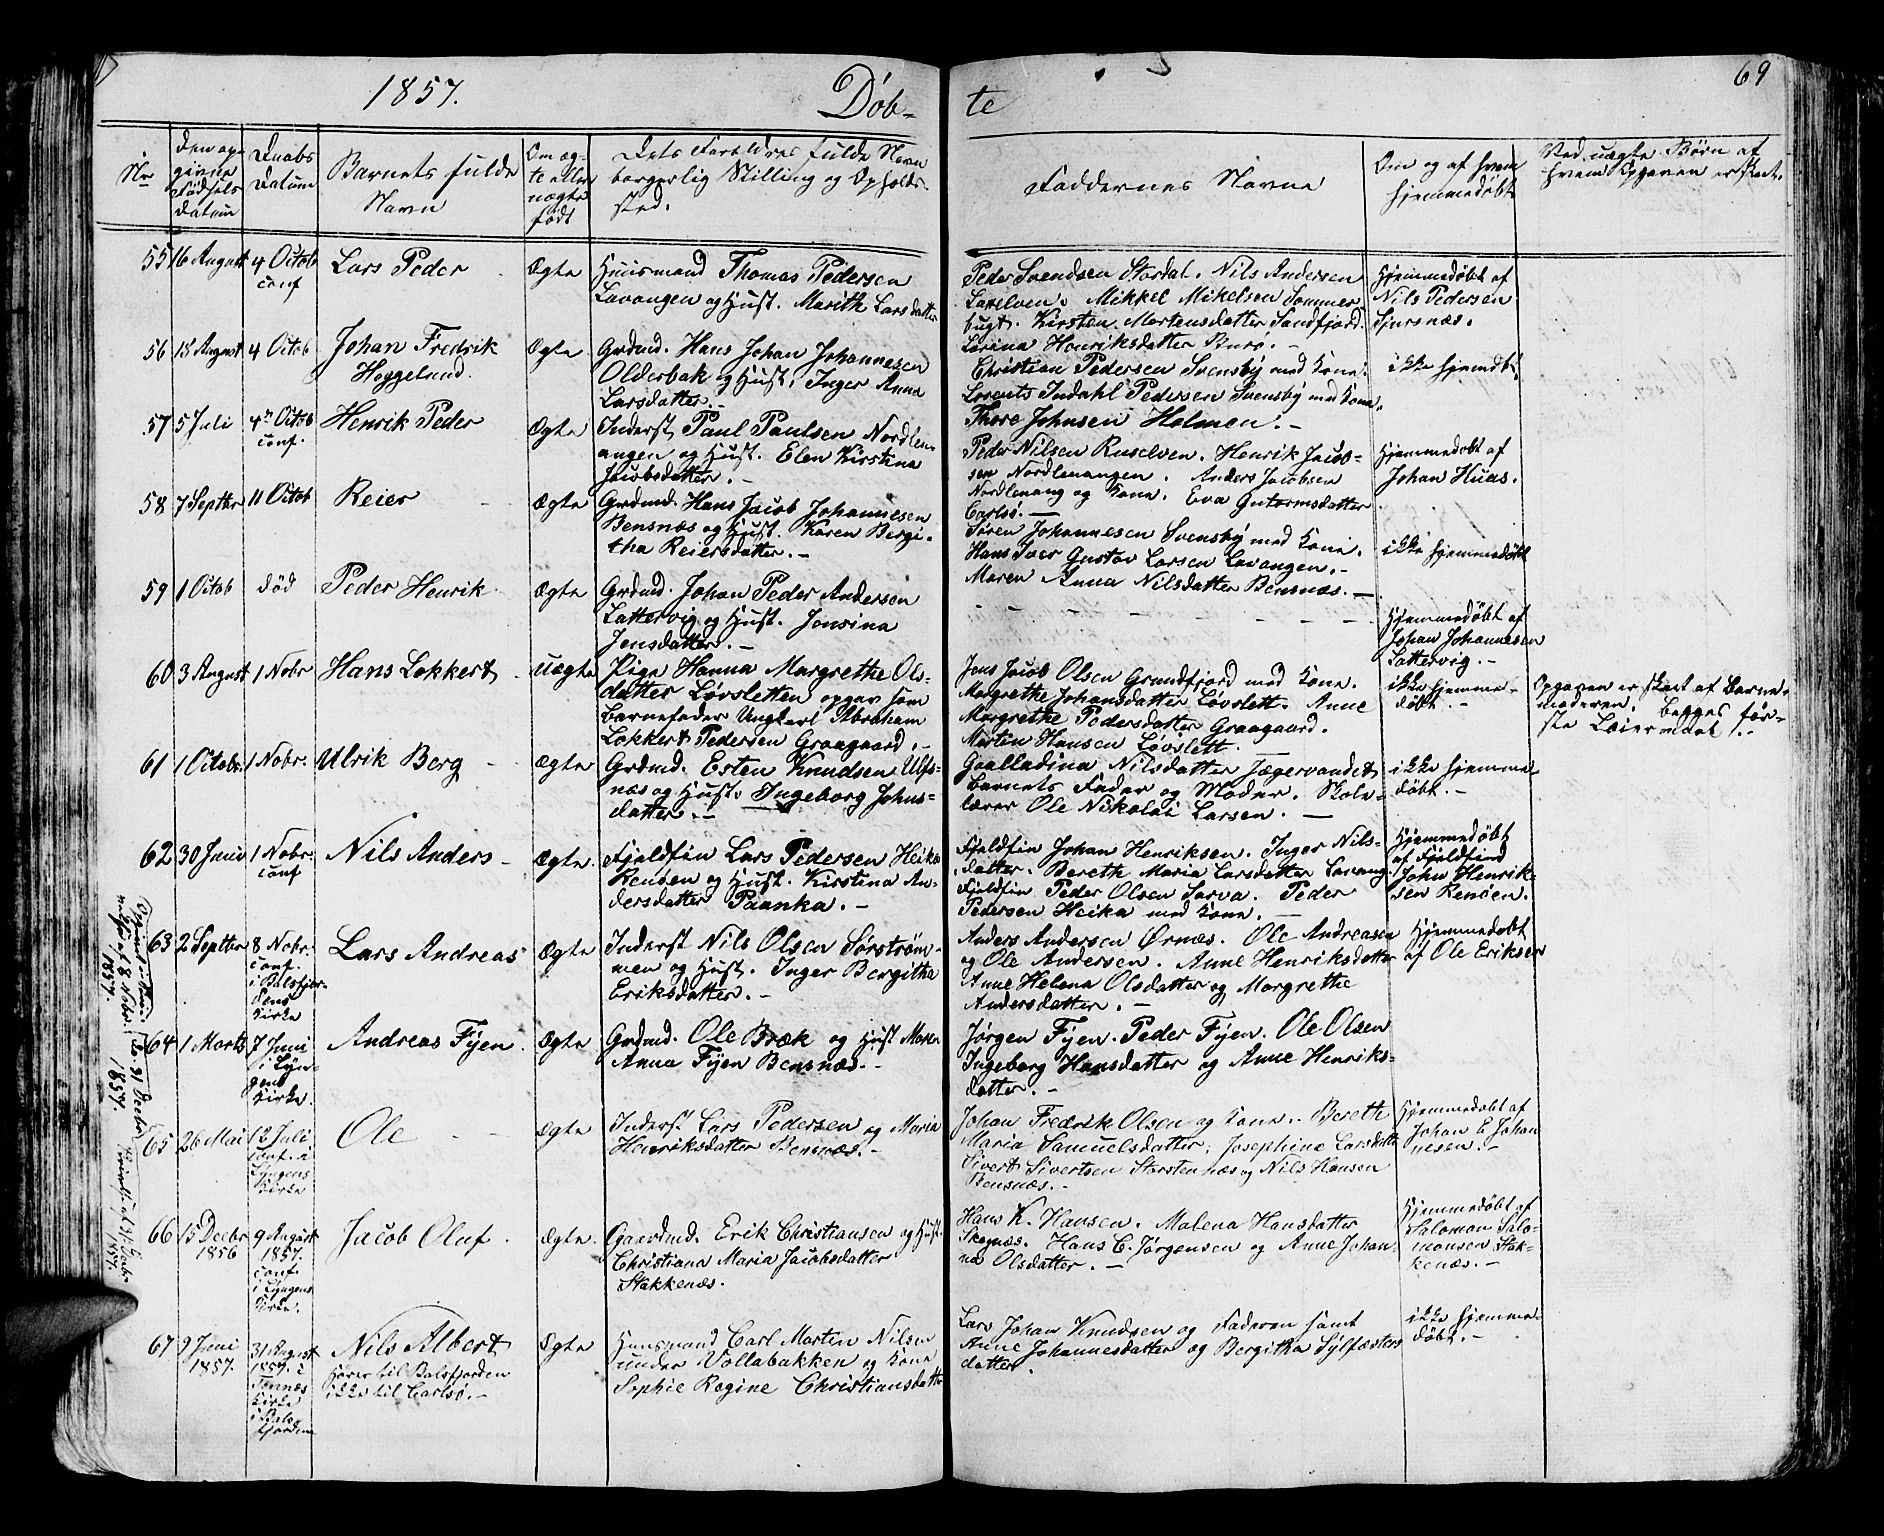 1857.
Døb-
te
69
Nr
Den op-
givne
Fødsels
Datum
Daabs
Datum
Barnets fulde
Navn
Om æg-
te eller
uægte
født
Dets Forældres fulde Navn
borgerlig Stilling og Opholds-
sted.
Faddernes Navne
Om og af hvem
hjemmedøbt
Ved uægte Børn af
hvem Opgaven er skeet.
55
16 August
4 Octob
conf
Lars Peder
Ægte
Huusmand Thomas Pedersen
Lavangen og Hust. Marith Larsdatter
Peder Svendsen Stordal. Nils Andersen
Lakselven. Mikkel Mikelsen Sommer
bugt. Kirsten Mortensdatter Sandfjord.
Lorina Henriksdatter
Hjemmedøbt af
Nils Pedersen
Sjursnæs.
56
15 August
4 Octob
Johan Fredrik
Heggelund.
Ægte
Grdmd. Hans Johan Johannesen
Olderbak og Hust. Inger Anna
Larsdatter. -
Christian Pedersen Svensby med Kone.
Lorents Indahl Pedersen Svensby med Kone.
Thore Johnsen Holmen. -
ikke hjemdbt.
57
5 Juli
4n Octob
conf.
Henrik Peder
Ægte
Inderst Paul Paulsen Nordlen-
angen og Hust. Elen Kirstina
Jacobsdatter. -
Peder Nilsen Ruselven. Henrik Jacob-
sen Nordlenangen. Anders Jacobsen
Nordlenang og Kone. Eva Gutormsdatter
Carlsö. -
Hjemmedøbt af
Johan Huas.
58
7 Septbr
11 Octob
Reier
Ægte
Grdmd. Hans Jacob Johannesen
Bensnæs og Hust. Karen Bergi-
tha Reiersdatter. -
Sören Johannesen Svensby med Kone.
Hans Iver Gustav Larsen Lavangen. -
Maren Anna Nilsdatter Bensnæs. -
ikke hjemmedøbt
59
1 Octob
død
Peder Henrik
Ægte
Grdmd. Johan Peder Andersen
Lattervig og Hust. Jonsina
Jensdatter. -
- - - - - - -
Hjemmedøbt af
Johan Johannesen
Lattervig. -
60
3 August
1 Nobr
Hans Lokkert
uægte
Pige Hanna Margrethe Ols-
datter Løvsletten opgav som
Barnefader Ungkarl Abraham
Lokkert Pedersen Graagaard. -
Jens Jacob Olsen Grundfjord med Kone.
Margrethe Johansdatter Løvslett. Anne
Margrethe Pedersdatter Graagaard.
Martin Hansen Løvslett.
ikke hjemme-
døbt. -
Opgaven er skeet af Barne-
moderen. Begges før-
ste Leiermaal. -
61
1 Octobr.
1 Nobr.
Ulrik Berg
Ægte
Grdmd. Esten Knudsen Ulfs-
næs og Hust. Ingeborg Johns-
datter. -
Nilsdatter Jægervandet
Barnets Fader og Moder. Skole-
lærer Ole Nikolai Larsen. -
ikke hjemme-
døbt. -
62
30 Juni
1 Nobr.
conf
Nils Anders -
Ægte.
Fjeldfin Lars Pedersen Heika
Renøen og Hust. Kirstina An-
dersdatter Paanka. -
Fjeldfin Johan Henriksen. Inger Nils-
datter. Bereth Maria Larsdatter Lavang.
Fjeldfin Peder Olsen Sarva. Peder
Pedersen Heika med Kone. -
Hjemmedøbt
af Fjeldfind
John Henrik-
sen Renøen.
63
2 Septbr
8 Nobr.
conf.
i Balsfjor-
dens
Kirke
Lars Andreas
Ægte
Inderst Nils Olsen Sørstrøm-
men og Hust. Inger Bergitha
Eriksdatter. -
Anders Andersen Ørnæs. Ole Andreasen
og Ole Andersen. Anne Henriksdatter
Anne Helena Olsdatter og Margrethe
Andersdatter. -
Hjemmedøbt
af Ole Eriksen
64
1 Marts
7 Juni
i Lyn-
gens
Kirke.
Andreas Fÿen.
Ægte
Grdmd. Ole Bæk og Hust Maren
Anna Fÿen Bensnæs. -
Jørgen Fÿen. Peder Fÿen. Ole Olsen
Ingeborg Hansdatter og Anne Henriks-
datter. -
65
26 Mai
12 Juli
conf. i
Lyngens
Kirke
Ole
Ægte
Inderst Lars Pedersen og Maria
Henriksdatter Bensnæs. -
Johan Fredrik Olsen og Kone. Bereth
Maria Samuelsdatter, Josephine Larsdatter
Sivert Sivertsen Storstennæs og Nils Hansen
Bensnæs. -
Hjemmedøbt af
Johan E Johan
nesen. -
66
15 Decbr
1856
9 August
1857.
conf
i Lyngens
Kirke.
Jacob Oluf.
Ægte.
Gaardmd. Erik Christiansen og Hust.
Christiana Maria Jacobsdatter
Stakkenæs.
Hans K. Hansen. Malena Hansdatter
Skognæs. Hans C. Jørgensen og Anne Johan-
na Olsdatter. -
Hjemmedøbt af
Salomon Salo-
monsen Stak-
kenæs. -
67
9 Juni
1857.
31 August
1857. i
Tennæs
Kirke
i Bals-
fjorden
Nils Albert
hører til Balsfjorden
ikke til Carlsø. -
Ægte
Huusmand Carl Martin Nilsen
under Vollabakken og Kone
Sophie Regine Christiansdatter
Lars Johan Knudsen og Faderen samt
Anne Johannesdatter og Bergitha Sylfæsters
datter.
ikke hjemme-
døbt. -
8 Nobr.
1857.
31 Decbr
1857.
1857.